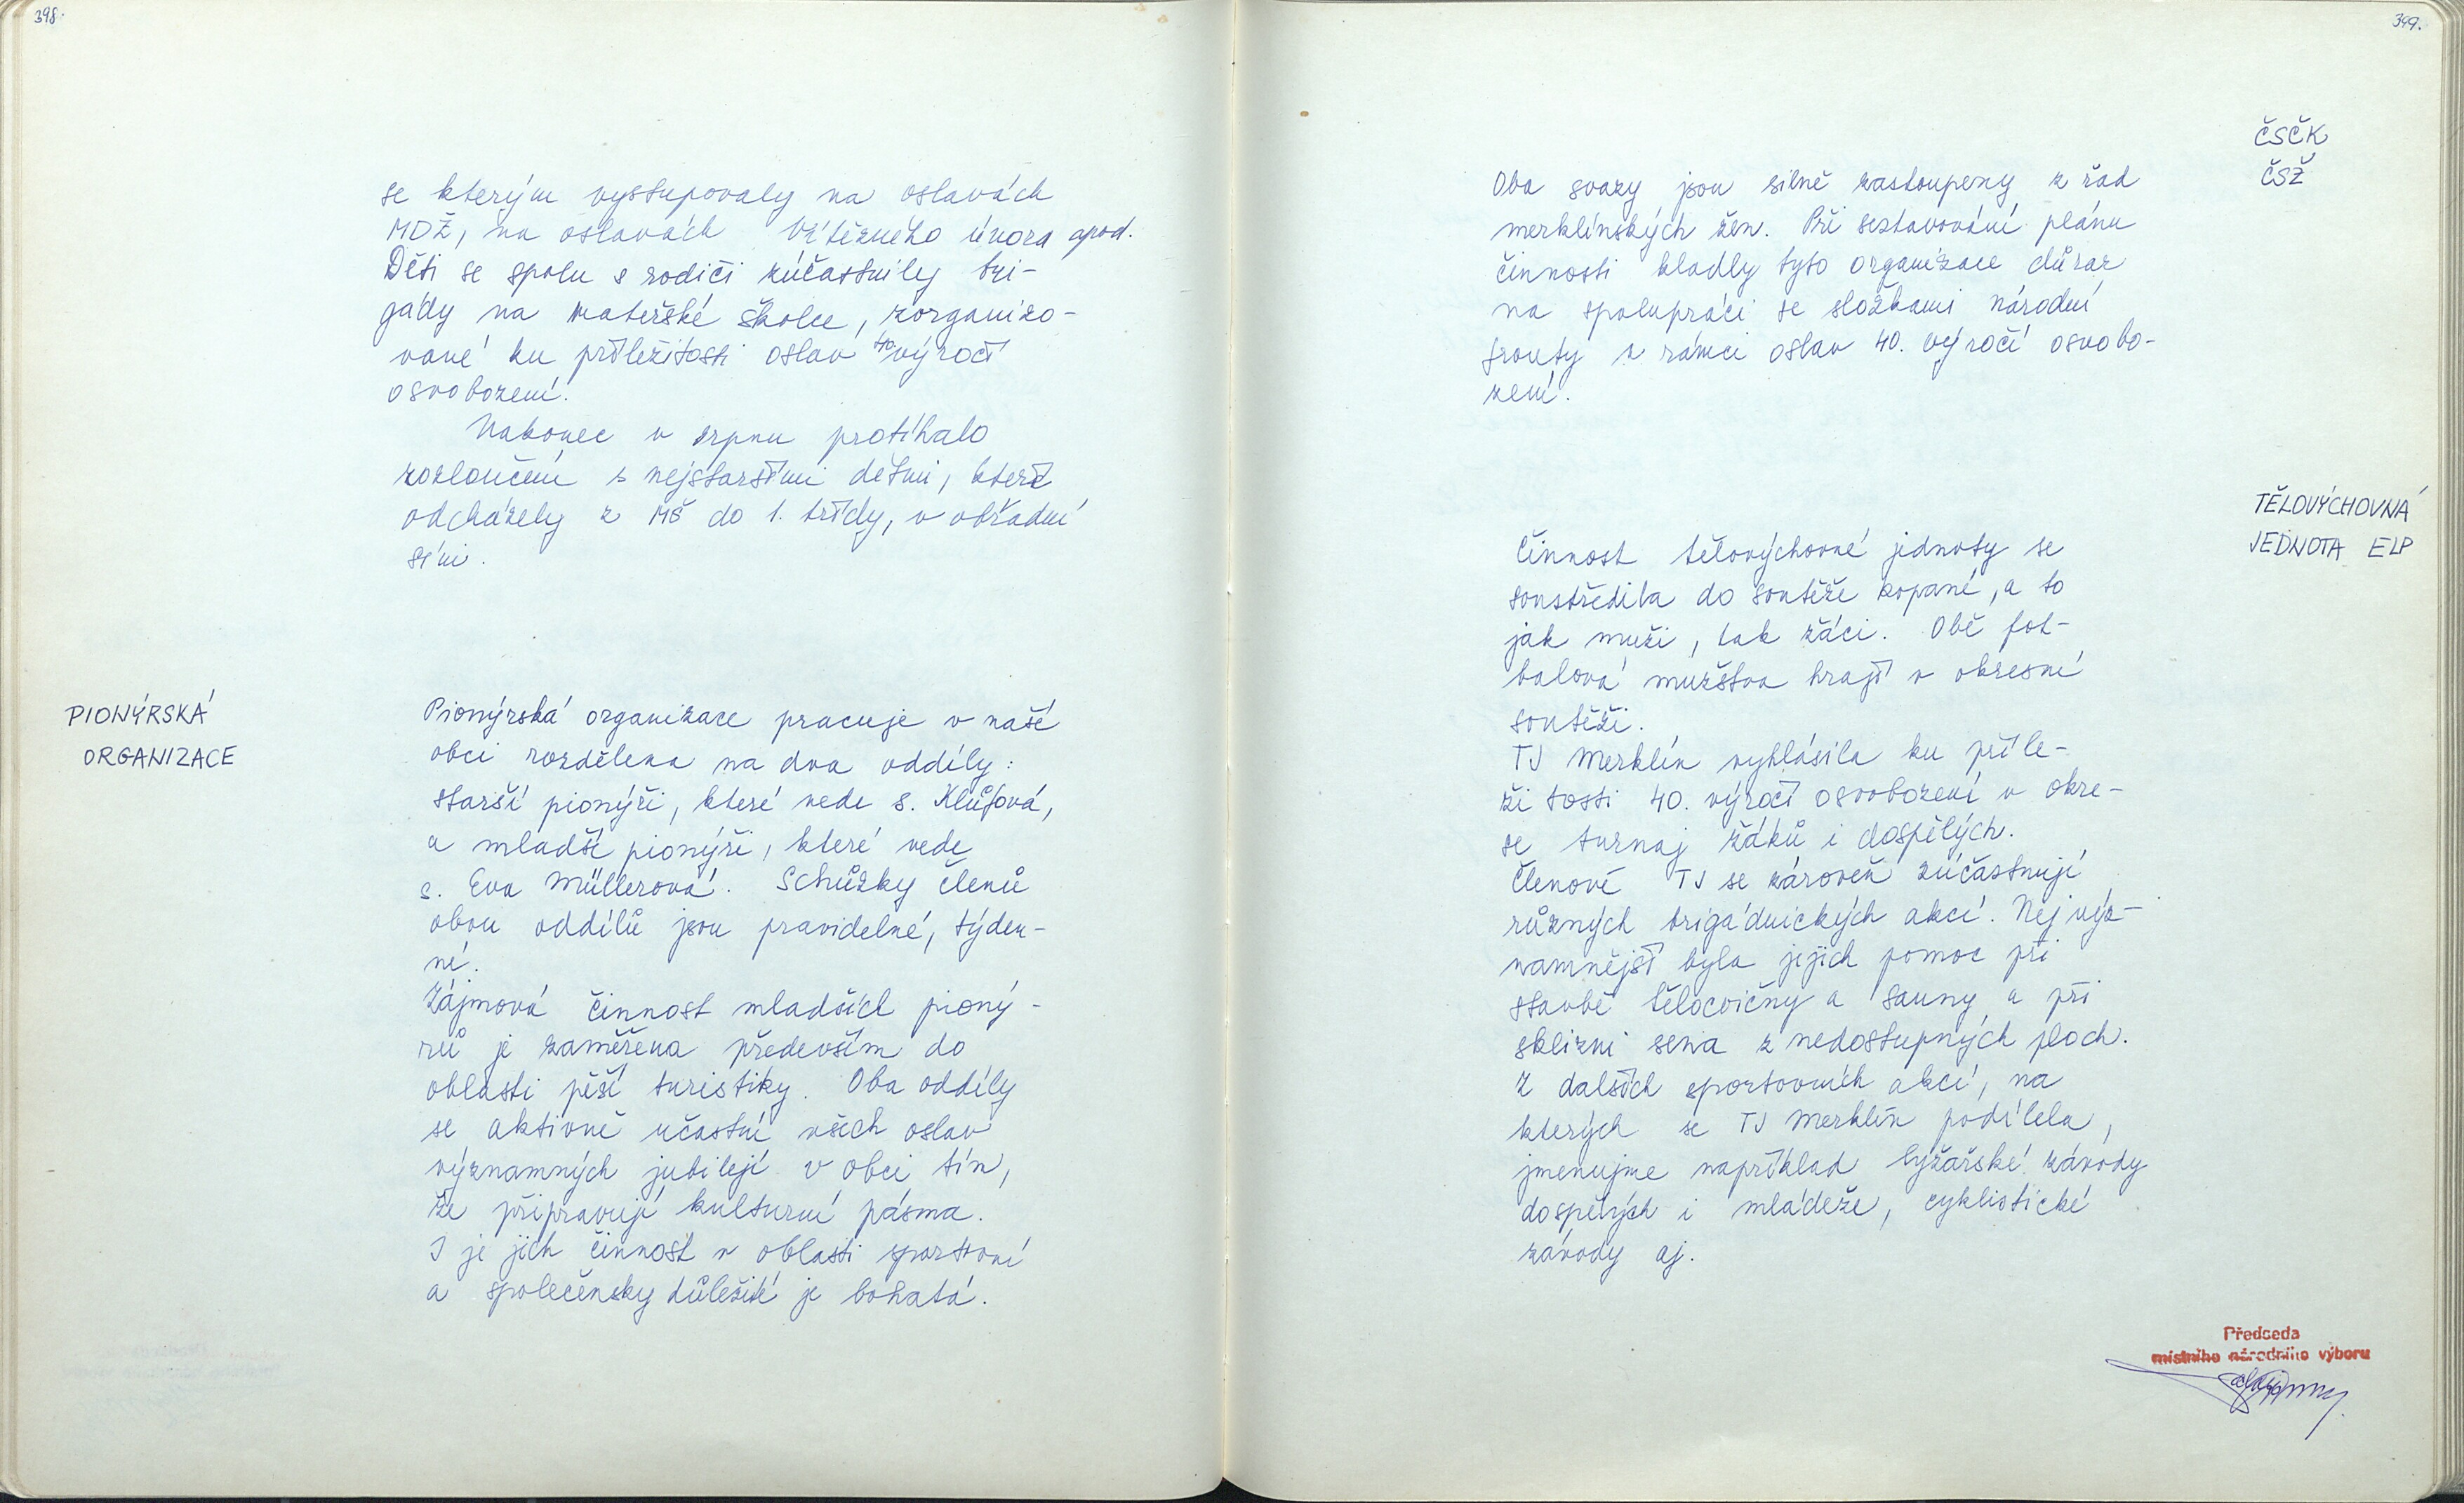 398.
se kterým vystupovaly na oslavách
MDŽ, na oslavách Vítězného února apod.
Děti se spolu s rodiči zúčastnily bri-
gády na mateřské školce, zorganizo-
vané ku příležitosti oslav 40. výročí
osvobození.
Nakonec v srpnu probíhalo
rozloučení s nejstaršími dětmi, které
odcházely z MŠ do 1. třídy, v obřadní
síni.
PIONÝRSKÁ
ORGANIZACE
Pionýrská organizace pracuje v naší
obci rozdělena na dva oddíly:
starší pionýři, které vede s. Klůfová,
a mladší pionýři, které vede
s. Eva Müllerová. Schůzky členů
obou oddílů jsou pravidelné, týden-
ní.
Zájmová činnost mladších pioný-
rů je zaměřena především do
oblasti pěší turistiky. Oba oddíly
se aktivně účastní všech oslav
významných jubilejí v obci tím,
že připravují kulturní pásma.
I je jich činnost v oblasti sportovní
a společensky důležité je bohatá.
399.
ČSČK
ČSŽ
Oba svazy jsou silně zastoupeny z řad
merklínských žen. Při sestavování plánu
činnosti kladly tyto organizace důraz
na spolupráci se složkami národní
fronty v rámci oslav 40. výročí osvobo-
zení.
TĚLOVÝCHOVNÁ
JEDNOTA ELP
Činnost tělovýchovné jednoty se
soustředila do soutěže kopané, a to
jak muži, tak žáci. Obě fot-
balová mužstva hrají v okresní
soutěži.
TJ Merklín vyhlásila ku příle-
ži tosti 40. výročí osvobození v okre-
se turnaj žáků i dospělých.
Členové TJ se zároveň zúčastnují
různých brigádnických akcí. Nejvýz-
namnější byla jejich pomoc při
stavbě tělocvičny a sauny a při
sklizni sena z nedostupných ploch.
Z dalších sportovních akcí, na
kterých se TJ Merklín podílela,
jmenujme například lyžařské závody
dospělých i mládeže, cyklistické
závody aj.
Předseda
místního národního výboru